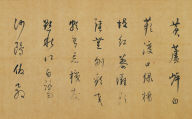 黃蘆岸白
蘋渡口綠楊
堤紅蓼灘
頭雖無刎頸交
卻有忘機友
點秋江白鷺
沙鷗傲殺